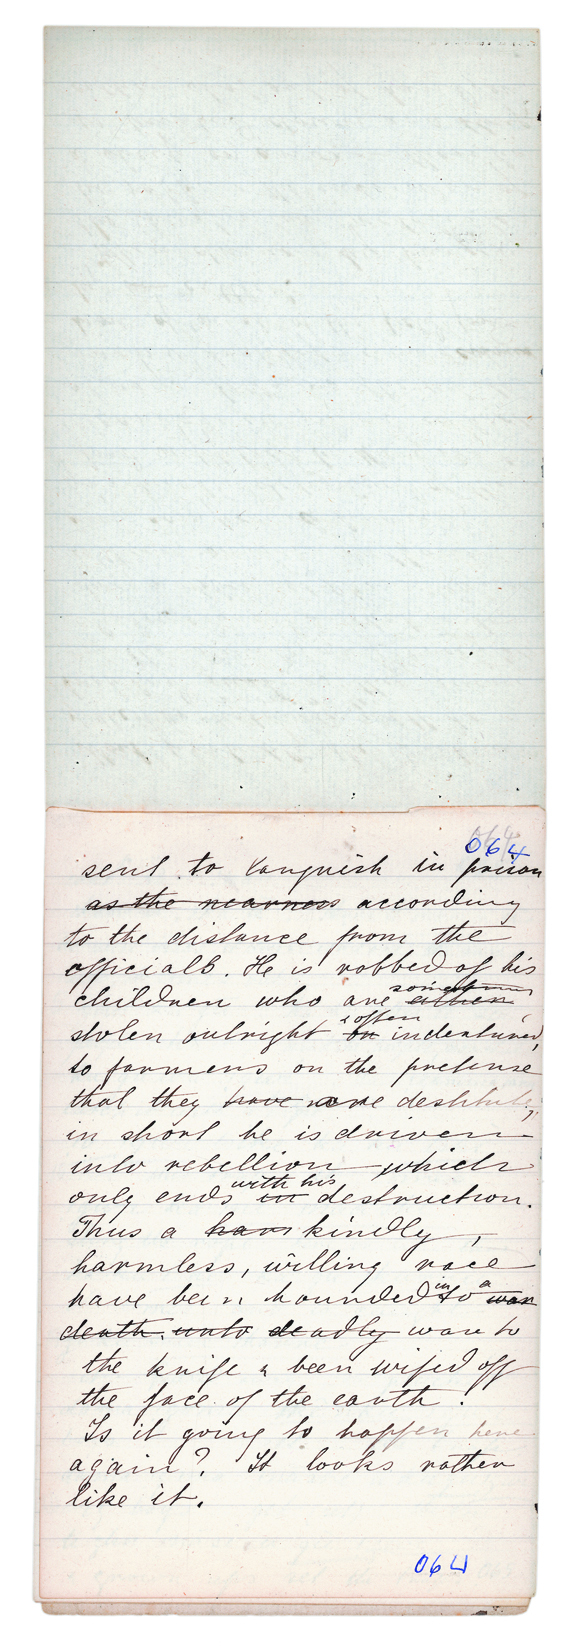 064
064
sent to languish in prison
as the nearness according
to the distance from the
officials. He is robbed of his
sometimes
children who are either
& often
stolen outright or indentured,
to farmers on the pretense
that they have were are destitute;
in short he is driven
into rebellion which
with his
only ends in destruction.
Thus a harm kindly,
harmless, willing race
in a
have been hounded to war
death, unto deadly war to
the knife & been wiped off
the face of the earth!
Is it going to happen here
again? It looks rather
like it.
064